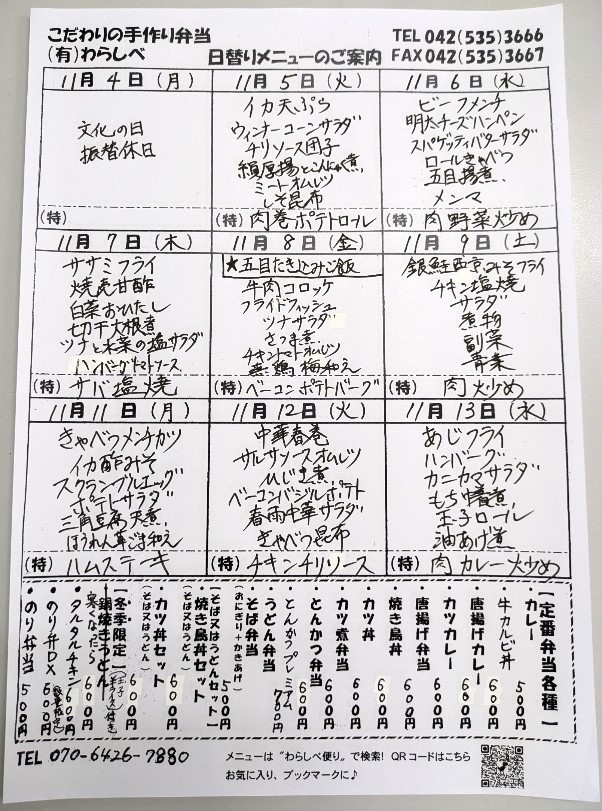 こだわりの手作り弁当
(有)わらしべ
日替りメニューのご案内
TEL 042(535)3666
FAX 042(535)3667
11月4日(月)
文化の日
振替休日
(特)
11月5日(火)
イカ天ぷら
ウィンナーコーンサラダ
チリソース団子
絹厚揚とこんにゃく煮
ミートオムレツ
しそ昆布
(特)肉巻ポテトロール
11月6日(水)
ビーフメンチ
明太チーズハンペン
スパゲッティバターサラダ
ロールきゃべつ
五目揚煮
メンマ
(特)肉野菜炒め
11月7日(木)
ササミフライ
焼売甘酢
白菜おひたし
切干大根煮
ツナと水菜の塩サラダ
ハンバーグトマトソース
(特)サバ塩焼
11月8日(金)
★五目たき込みご飯
牛肉コロッケ
フライドフィッシュ
ツナサラダ
さつま煮
チキントマトオムレツ
蒸鶏梅和え
(特)ベーコンポテトバーグ
11月9日(土)
銀鮭西京みそフライ
チキン塩焼
サラダ
煮物
副菜
青菜
(特)肉炒め
11月11日(月)
きゃべつメンチカツ
イカ酢みそ
スクランブルエッグ
ポテトサラダ
三角豆腐天煮
ほうれん草ごま和え
(特)ハムステーキ
11月12日(火)
中華春巻
サルサソースオムレツ
ひじき煮
ベーコンバジルポテト
春雨中華サラダ
きゃべつ昆布
(特)チキンチリソース
11月13日(水)
あじフライ
ハンバーグ
カニカマサラダ
もち巾着煮
玉子ロール
油あげ煮
(特)肉カレー炒め
【定番弁当各種】
・カレー 500円
・牛カルビ丼 600円
・唐揚げカレー 600円
・カツカレー 600円
・唐揚げ弁当 600円
・焼き鳥丼 600円
・カツ丼 600円
・カツ煮弁当 600円
・とんかつ弁当 600円
・とんかつプレミアム 700円
・うどん弁当
・そば弁当 500円
(おにぎり+かきあげ)
【そば又はうどんセット】
・焼き鳥丼セット 600円
(そば又はうどん)
・カツ丼セット 600円
(そば又はうどん)
【冬季限定】
・鍋焼きうどん 600円
寒くなったら
・タルタルチキン 600円
・のり弁DX 600円
・のり弁当 500円
TEL 070-6426-7880
メニューは“わらしべ便り”で検索! QRコードはこちら
お気に入り、ブックマークに♪